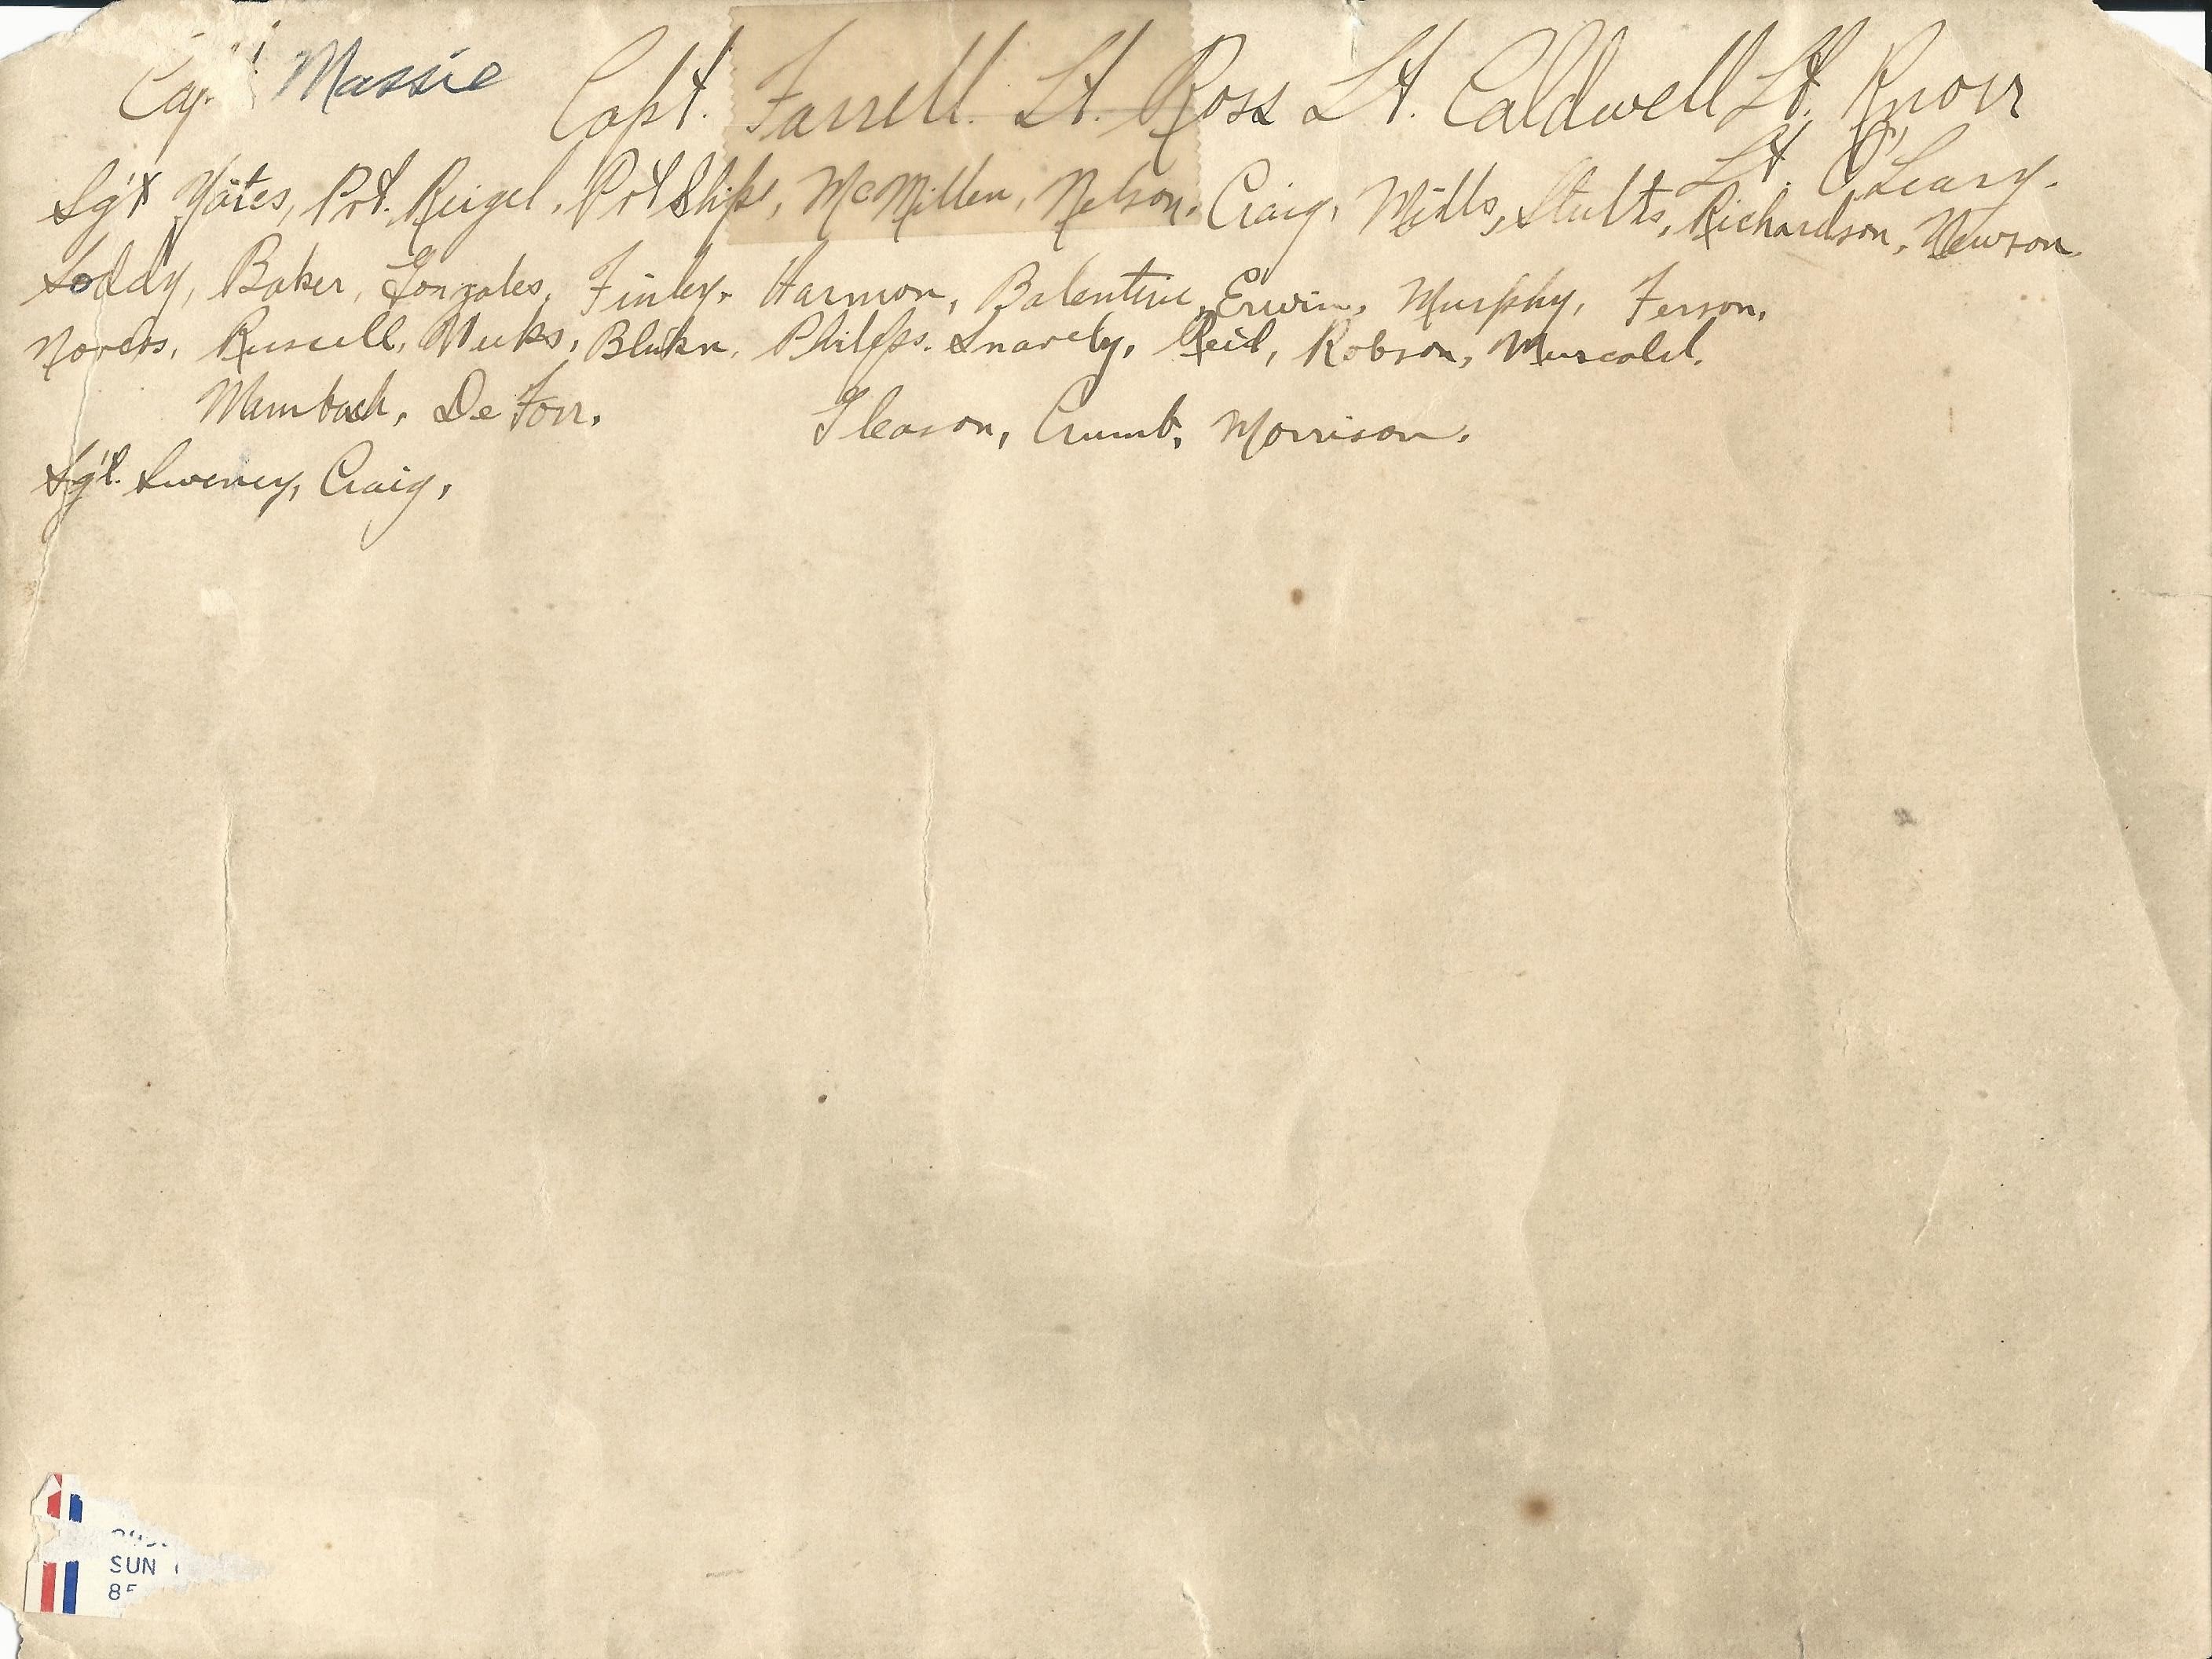 Cap. Massie Capt. Farrell. Lt. Ross Lt. Caldwell Lt. Knorr
Lt. O'Leary.
Sgt Yates, Pvt. Reigel, Pvt Ship, McMillen, Nelson, Craig, Mills, Stults, Richardson, Newson
Soddy, Baker, Gonzales, Finley, Harmon, Balentine, Erwin, Murphy, Ferson,
Russell, Meeks, Philips. Snavely, Reid, Robson,
Mambach, De Forr. Gleason, Crumb, Morrison.
Sgt. Sweney, Craig,
SUN
85